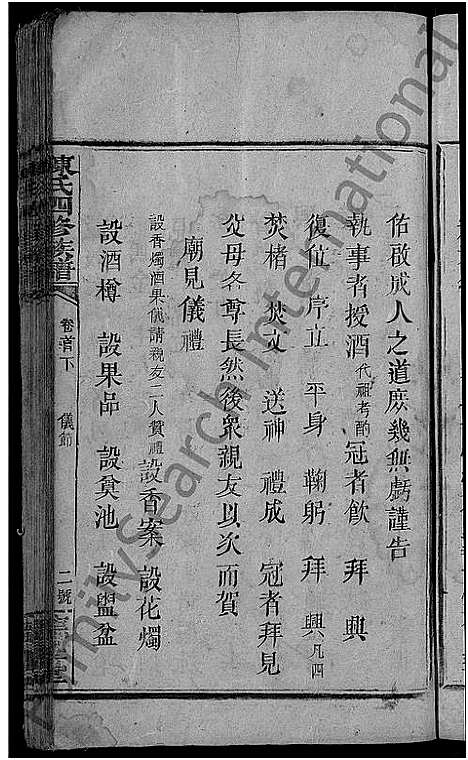 佑啟成人之道庶幾無虧謹告
執事者授酒 代祖考酌 冠者飲 拜 興
復位 序立 平身 鞠躬 拜 興 凡四
焚楮 焚文 送神 禮成 冠者拜見
父母各尊長然後眾親友以次而賀
廟見儀禮
設香燭酒果儀請親友二人贊禮 設香案 設花燭
設酒樽 設果品 設奠池 設盥盆
陳氏四修族譜 卷首下 儀節 二號
FamilySearch International